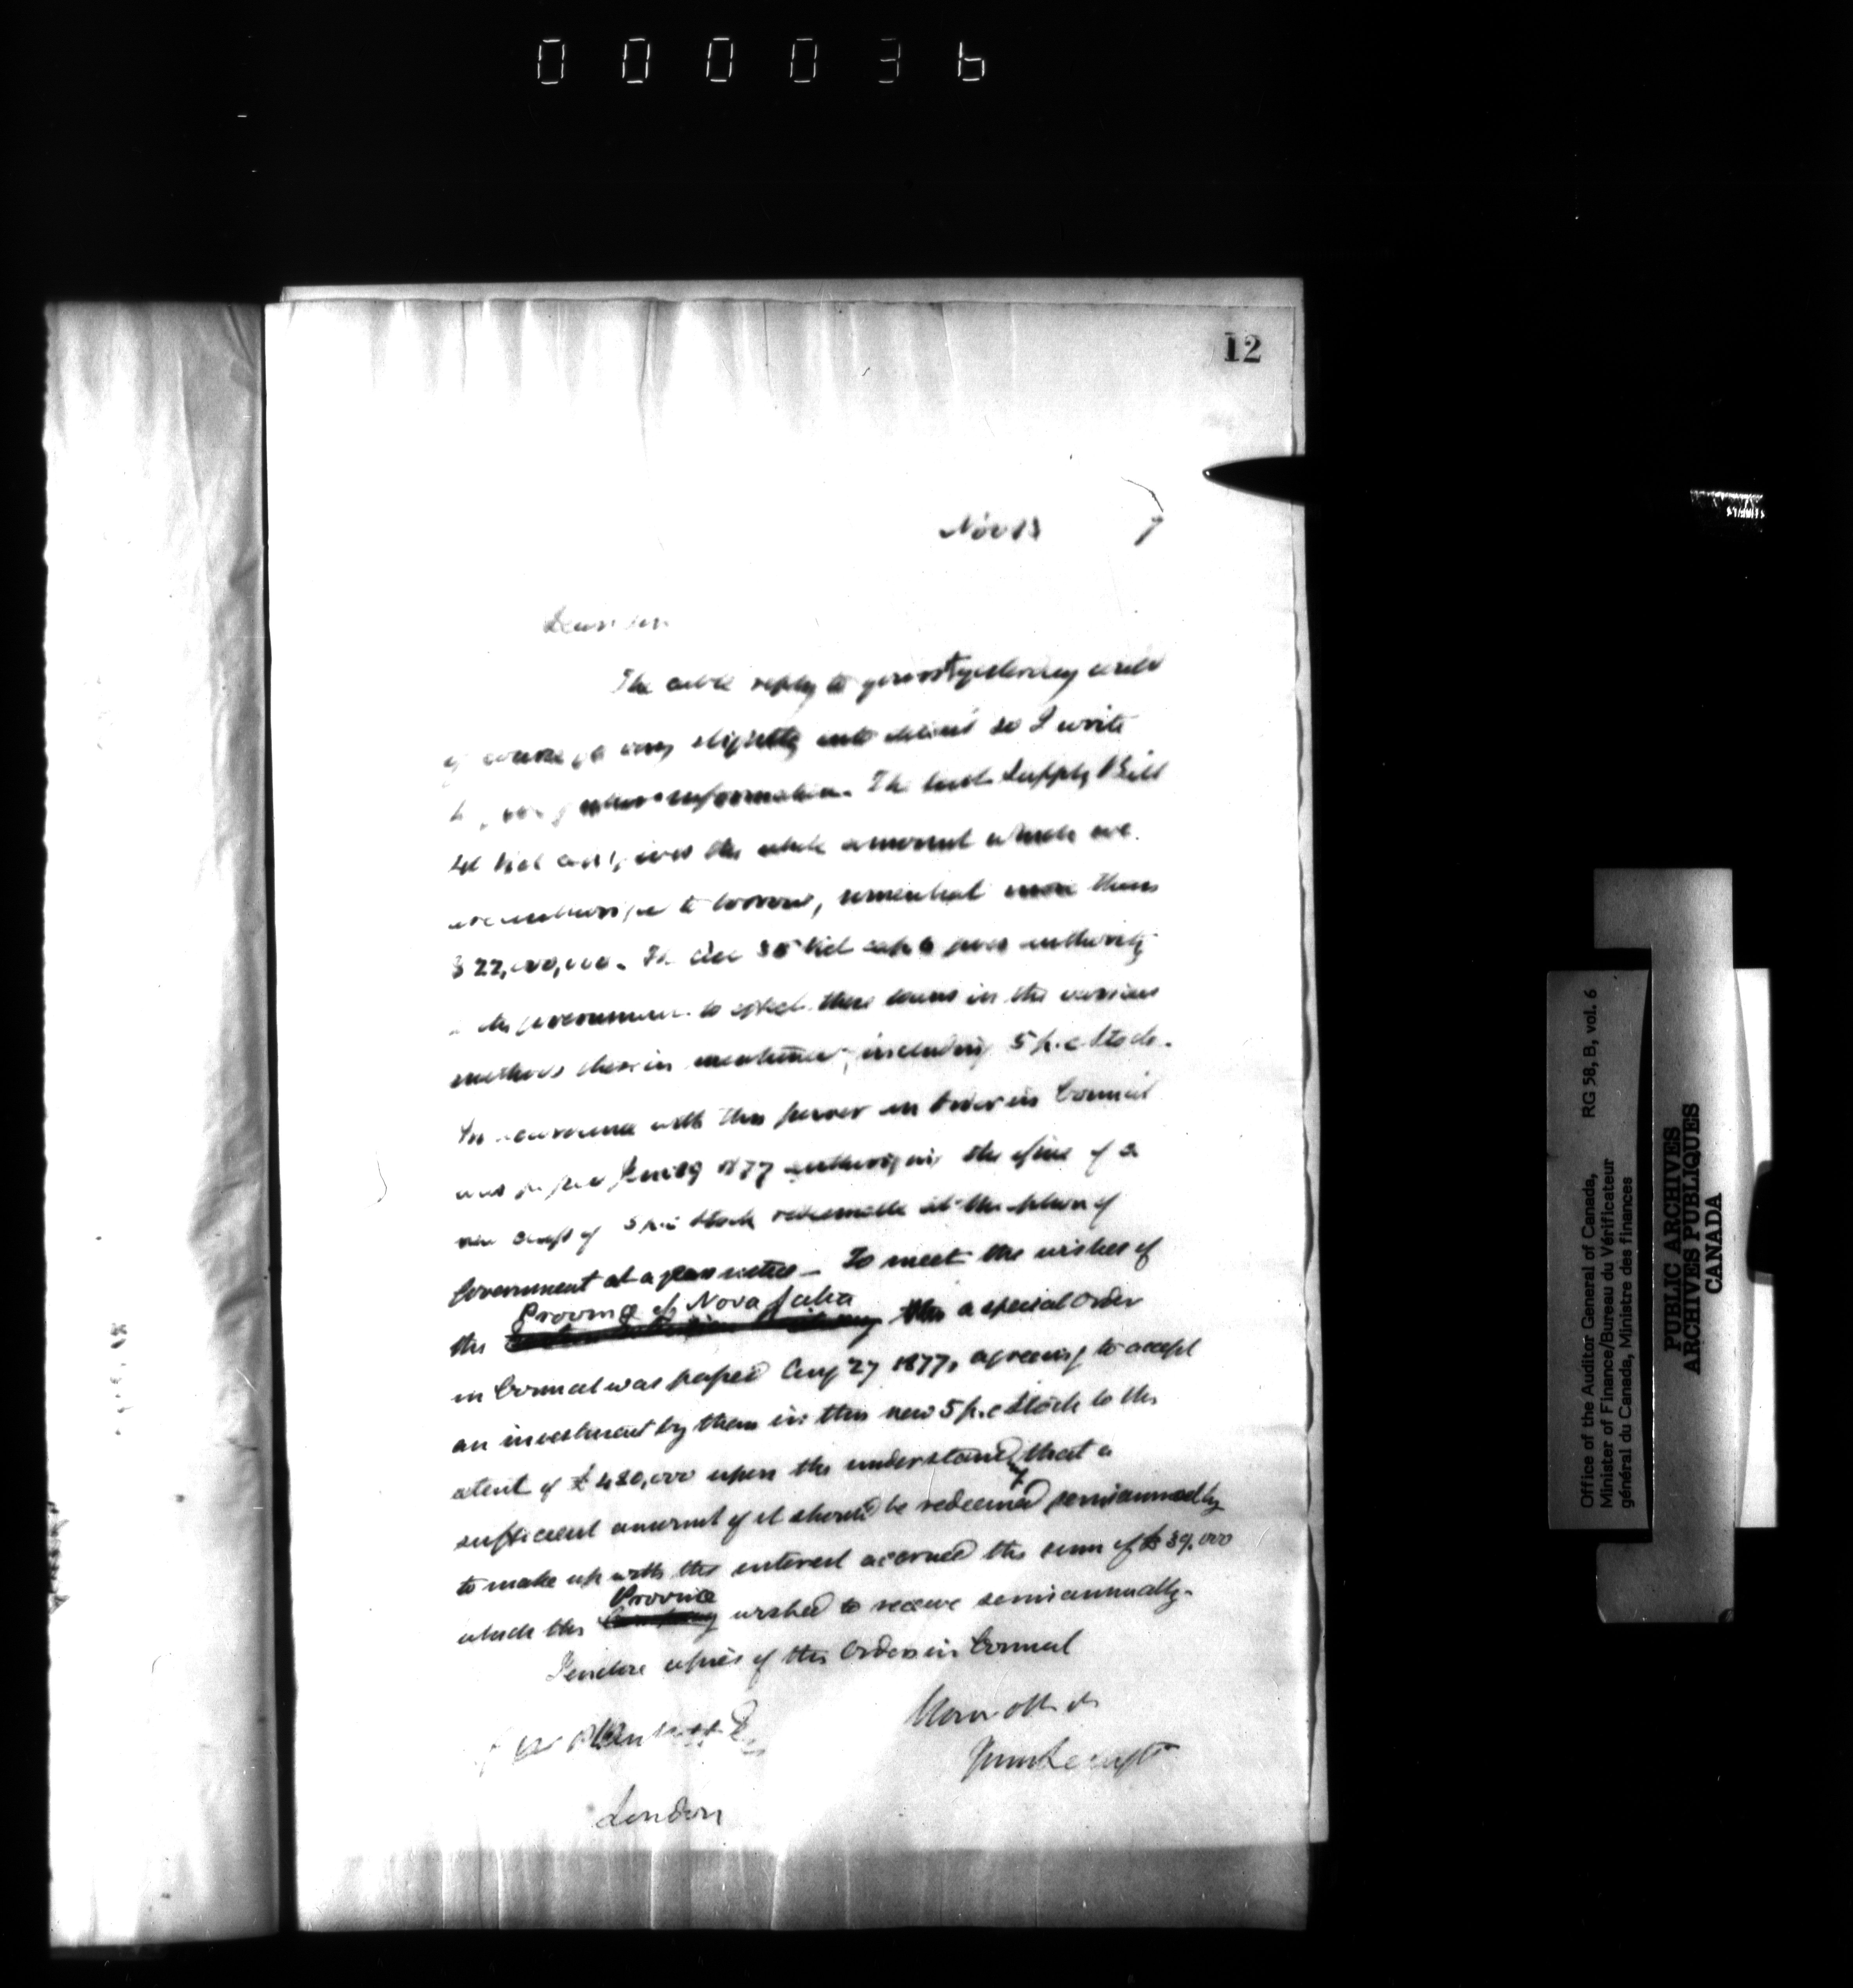 000036
12
Nov 13 7
Dear Sir
The cable reply to yours of yesterday could
of course go very slightly into detail so I write
information. The last Supply Bill
40 Vict cap 1, gives the whole amount which we
are authorized to borrow, somewhat more than
$22,000,000. The Act 35 Vict cap 6 gives authority
to the government to effect these loans in the various
methods therein mentioned, including 5 p.c Stock.
In accordance with this power an Order in Council
was passed 1877 authorizing the issue of a
new class of 5 p.c Stock redeemable at the pleasure of
Government at a years notice — To meet the wishes of
Province of Nova Scotia
the a special Order
in Council was passed Aug 27 1877, agreeing to accept
an investment by them in this new 5 p.c Stock to the
extent of £ 480,000 upon the understanding that a
sufficient amount of it should be redeemed semiannually
to make up with the interest accrued the sum of $ 39,000
Province
which the Company wished to receive semiannually.
I enclose copies of the Orders in Council
London
Office of the Auditor General of Canada, RG 58, B, vol. 6
Minister of Finance/Bureau du Vérificateur
général du Canada, Ministre des finances
PUBLIC ARCHIVES
ARCHIVES PUBLIQUES
CANADA